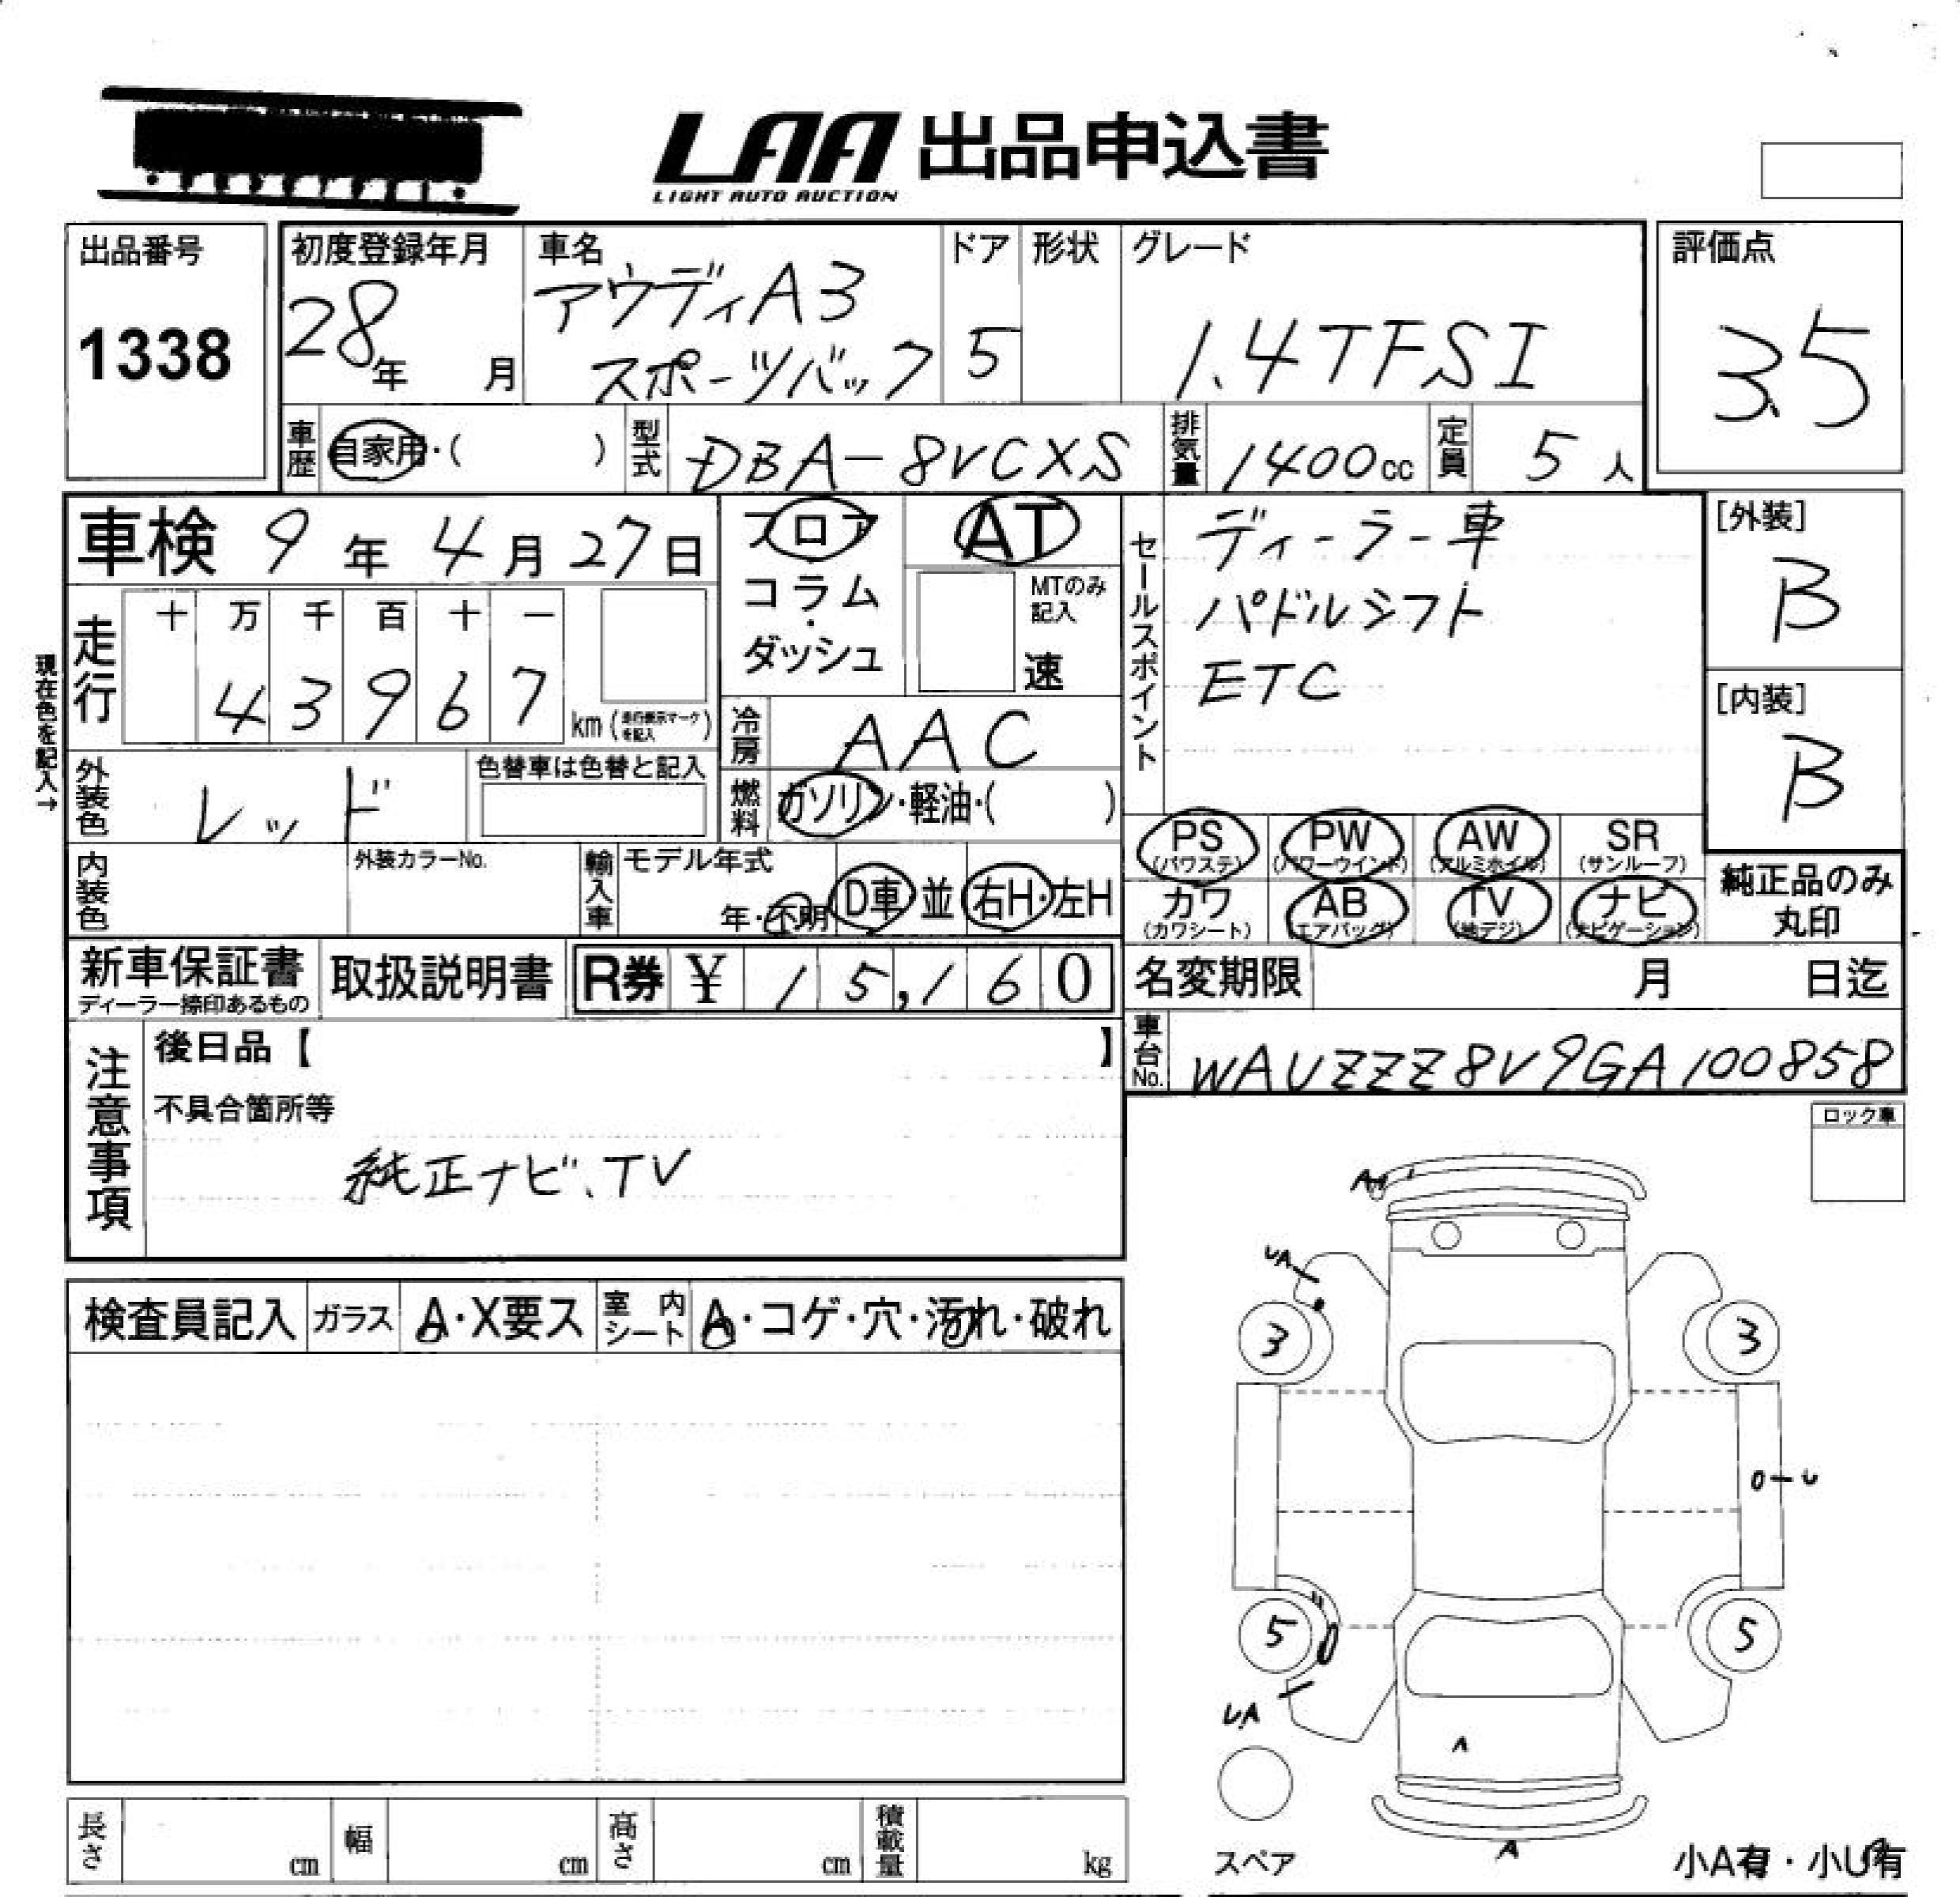 LAA 出品申込書
LIGHT AUTO AUCTION
出品番号
1338
初度登録年月
28年 月
車名
アウディA3
スポーツバック
ドア
5
形状
グレード
1.4TFSI
評価点
3.5
車歴 自家用・( )
型式 DBA-8VCXS
排気量 1400cc
定員 5人
車検 9年 4月 27日
現在色を記入→
走行
十 万 千 百 十 一
4 3 9 6 7
km (走行表示マークを記入)
外装色 レッド
色替車は色替と記入
内装色
外装カラーNo.
フロア
コラム
・
ダッシュ
AT
MTのみ記入
速
冷房 AAC
燃料 ガソリン・軽油・( )
輸入車 モデル年式
年・不明 D車 並 右H・左H
セールスポイント
ディーラー車
パドルシフト
ETC
[外装]
B
[内装]
B
PS (パワステ)
PW (パワーウインド)
AW (アルミホイル)
SR (サンルーフ)
カワ (カワシート)
AB (エアバッグ)
TV (地デジ)
ナビ (ナビゲーション)
純正品のみ
丸印
新車保証書
ディーラー捺印あるもの
取扱説明書
R券 ¥ 15,160
名変期限 月 日迄
車台No. WAUZZZ8V9GA100858
注意事項
後日品【 】
不具合箇所等
純正ナビ、TV
ロック車
検査員記入 ガラス A・X要ス 室内シート A・コゲ・穴・汚れ・破れ
UA
3
3
5
5
UA
A
A
スペア
小A有・小U有
長さ cm 幅 cm 高さ cm 積載量 kg